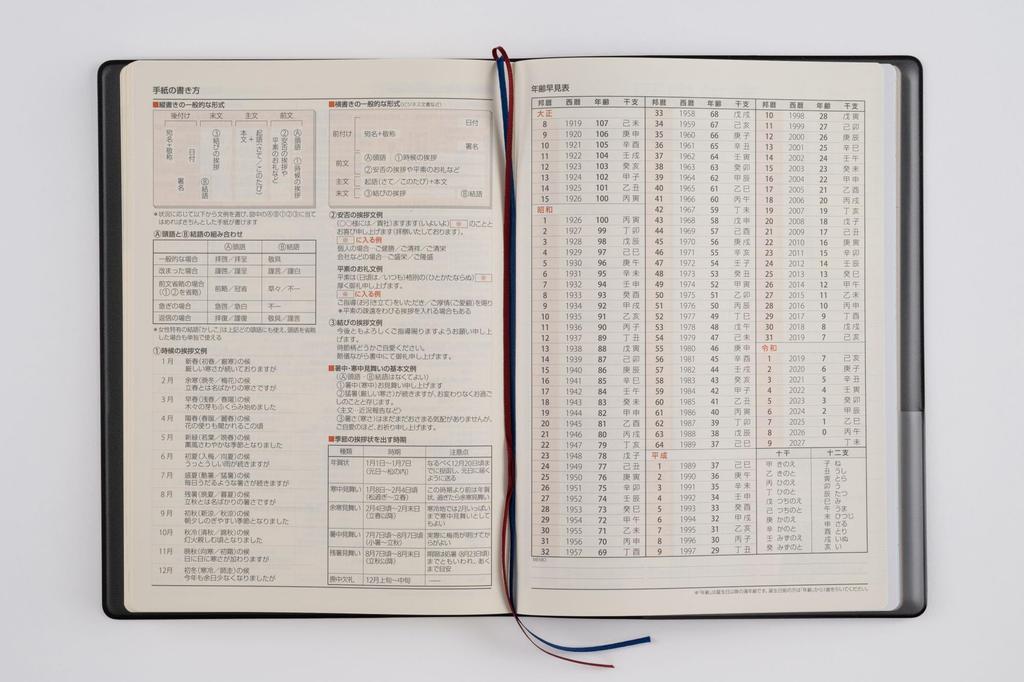 手紙の書き方
■縦書きの一般的な形式
後付け 末文 主文 前文
宛名+敬称
日付
署名
③結びの挨拶
Ⓑ結語
起語(さて/このたび)+本文
Ⓐ頭語 ①時候の挨拶
②安否の挨拶や平素のお礼など
*状況に応じて以下から文例を選び、図中のⒶⒷ①②③に当て
はめればきちんとした手紙が書けます
Ⓐ頭語とⒷ結語の組み合わせ
Ⓐ頭語 Ⓑ結語
一般的な場合 拝啓/拝呈 敬具
改まった場合 謹啓/謹呈 謹言/謹白
前文省略の場合(①②を省略) 前略/冠省 草々/不一
急ぎの場合 急啓/急白 不一
返信の場合 拝復/謹復 敬具/謹言
*女性特有の結語「かしこ」は上記どの頭語にも使え、頭語を省略
した場合も単独で使える
①時候の挨拶文例
1月 新春(初春/厳寒)の候
厳しい寒さが続いておりますが
2月 余寒(晩冬/梅花)の候
立春とは名ばかりの寒さですが
3月 早春(浅春/春陽)の候
木々の芽もふくらみ始めました
4月 陽春(春暖/麗春)の候
花の便りも聞かれるこの頃
5月 新緑(若葉/晩春)の候
薫風さわやかな季節となりました
6月 初夏(入梅/向夏)の候
うっとうしい雨が続きますが
7月 盛夏(酷暑/猛暑)の候
毎日うだるような暑さが続きますが
8月 残暑(晩夏/暮夏)の候
立秋とは名ばかりの暑さですが
9月 初秋(新涼/秋涼)の候
朝夕しのぎやすい季節となりました
10月 秋冷(清秋/錦秋)の候
灯火親しむ頃となりました
11月 晩秋(向寒/初霜)の候
日に日に寒さが加わりますが
12月 初冬(寒冷/師走)の候
今年も余日少なくなりましたが
■横書きの一般的な形式(ビジネス文書など)
日付
前付け 宛名+敬称
署名
前文 Ⓐ頭語 ①時候の挨拶
②安否の挨拶や平素のお礼など
主文 起語(さて/このたび)+本文
末文 ③結びの挨拶 Ⓑ結語
②安否の挨拶文例
(○○様には/貴社)ますます(いよいよ)※のことと
お喜び申し上げます(拝察いたしております)。
※に入る例
個人の場合…ご健勝/ご清祥/ご清栄
会社などの場合…ご盛栄/ご隆盛
平素のお礼文例
平素は(日頃は/いつも)格別の(ひとかたならぬ)※
厚く御礼申し上げます。
※に入る例
ご指導(お引き立て)をいただき/ご厚情(ご愛顧)を賜り
*平素の疎遠をわびる挨拶を入れる場合もある
③結びの挨拶文例
今後ともよろしくご指導賜りますようお願い申し上
げます。
時節柄どうかご自愛ください。
略儀ながら書中にて御礼申し上げます。
■暑中・寒中見舞いの基本文例
(Ⓐ頭語・Ⓑ結語はなくてよい)
①暑中(寒中)お見舞い申し上げます
②猛暑(厳しい寒さ)が続きますが、お変わりなくお過ご
しのことと存じます。
(主文…近況報告など)
③暑さ(寒さ)はまだまだおさまる気配がありませんが、
ご自愛のほど、お祈り申し上げます。
■季節の挨拶状を出す時期
種類 時期 注意点
年賀状 1月1日〜1月7日(元日〜松の内) なるべく12月20日頃までに投函し、元日に届くように送る
寒中見舞い 1月8日〜2月4日頃(松過ぎ〜立春) この時期より前は年賀状、過ぎたら余寒見舞い
余寒見舞い 2月4日頃〜2月末日(立春以降) 寒冷地では2月いっぱいまで寒中見舞いとしてもよい
暑中見舞い 7月7日頃〜8月7日頃(小暑〜立秋) 実際に梅雨が明けてからがよい
残暑見舞い 8月7日頃〜8月末日(立秋以降) 期限は処暑(8月23日頃)までともいわれ、あくまで目安
喪中欠礼 12月上旬〜中旬 ——
年齢早見表
邦暦 西暦 年齢 干支
大正
8 1919 107 己未
9 1920 106 庚申
10 1921 105 辛酉
11 1922 104 壬戌
12 1923 103 癸亥
13 1924 102 甲子
14 1925 101 乙丑
15 1926 100 丙寅
昭和
1 1926 100 丙寅
2 1927 99 丁卯
3 1928 98 戊辰
4 1929 97 己巳
5 1930 96 庚午
6 1931 95 辛未
7 1932 94 壬申
8 1933 93 癸酉
9 1934 92 甲戌
10 1935 91 乙亥
11 1936 90 丙子
12 1937 89 丁丑
13 1938 88 戊寅
14 1939 87 己卯
15 1940 86 庚辰
16 1941 85 辛巳
17 1942 84 壬午
18 1943 83 癸未
19 1944 82 甲申
20 1945 81 乙酉
21 1946 80 丙戌
22 1947 79 丁亥
23 1948 78 戊子
24 1949 77 己丑
25 1950 76 庚寅
26 1951 75 辛卯
27 1952 74 壬辰
28 1953 73 癸巳
29 1954 72 甲午
30 1955 71 乙未
31 1956 70 丙申
32 1957 69 丁酉
邦暦 西暦 年齢 干支
33 1958 68 戊戌
34 1959 67 己亥
35 1960 66 庚子
36 1961 65 辛丑
37 1962 64 壬寅
38 1963 63 癸卯
39 1964 62 甲辰
40 1965 61 乙巳
41 1966 60 丙午
42 1967 59 丁未
43 1968 58 戊申
44 1969 57 己酉
45 1970 56 庚戌
46 1971 55 辛亥
47 1972 54 壬子
48 1973 53 癸丑
49 1974 52 甲寅
50 1975 51 乙卯
51 1976 50 丙辰
52 1977 49 丁巳
53 1978 48 戊午
54 1979 47 己未
55 1980 46 庚申
56 1981 45 辛酉
57 1982 44 壬戌
58 1983 43 癸亥
59 1984 42 甲子
60 1985 41 乙丑
61 1986 40 丙寅
62 1987 39 丁卯
63 1988 38 戊辰
64 1989 37 己巳
平成
1 1989 37 己巳
2 1990 36 庚午
3 1991 35 辛未
4 1992 34 壬申
5 1993 33 癸酉
6 1994 32 甲戌
7 1995 31 乙亥
8 1996 30 丙子
9 1997 29 丁丑
邦暦 西暦 年齢 干支
10 1998 28 戊寅
11 1999 27 己卯
12 2000 26 庚辰
13 2001 25 辛巳
14 2002 24 壬午
15 2003 23 癸未
16 2004 22 甲申
17 2005 21 乙酉
18 2006 20 丙戌
19 2007 19 丁亥
20 2008 18 戊子
21 2009 17 己丑
22 2010 16 庚寅
23 2011 15 辛卯
24 2012 14 壬辰
25 2013 13 癸巳
26 2014 12 甲午
27 2015 11 乙未
28 2016 10 丙申
29 2017 9 丁酉
30 2018 8 戊戌
31 2019 7 己亥
令和
1 2019 7 己亥
2 2020 6 庚子
3 2021 5 辛丑
4 2022 4 壬寅
5 2023 3 癸卯
6 2024 2 甲辰
7 2025 1 乙巳
8 2026 0 丙午
9 2027 丁未
十干 十二支
甲 きのえ
乙 きのと
丙 ひのえ
丁 ひのと
戊 つちのえ
己 つちのと
庚 かのえ
辛 かのと
壬 みずのえ
癸 みずのと
子 ね
丑 うし
寅 とら
卯 う
辰 たつ
巳 み
午 うま
未 ひつじ
申 さる
酉 とり
戌 いぬ
亥 い
MEMO
※「年齢」は誕生日以降の満年齢です。誕生日前の方は「年齢」から1歳を引いてください。